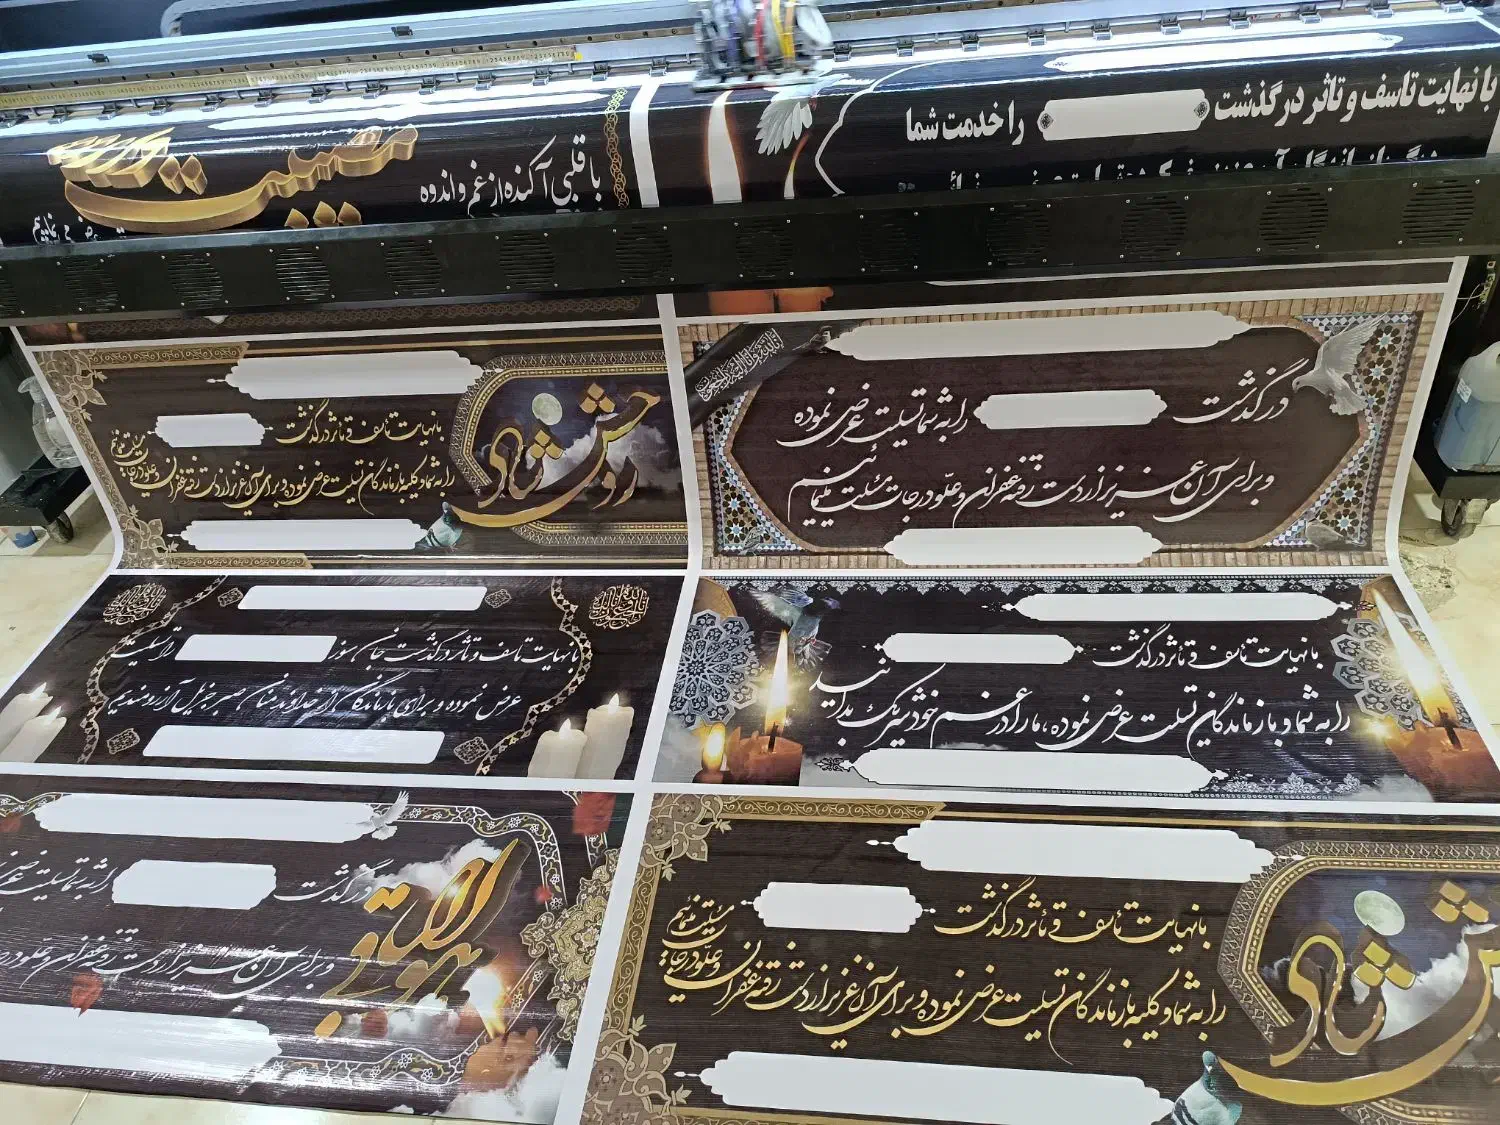 با نهایت تاسف و تاثر در گذشت
را خدمت شما
با قلبی آکنده از غم و اندوه
تسلیت
در گذشت
را به شما تسلیت عرض نموده
و برای آن عزیز از دست رفته غفران و علو درجات مسئلت مینمائیم
روحش شاد
با نهایت تاسف و تاثر در گذشت
را به شما و کلیه بازماندگان تسلیت عرض نموده و برای آن عزیز از دست رفته غفران
و علو درجات
مسئلت مینمائیم
با نهایت تاسف و تاثر در گذشت
را به شما و بازماندگان تسلیت عرض نموده، ما را در غم خود شریک بدانید
با نهایت تاسف و تاثر در گذشت جان سوز
را تسلیت
عرض نموده و برای بازماندگان از خداوند منان صبر جزیل آرزومندیم
روحش شاد
با نهایت تاسف و تاثر در گذشت
را به شما و کلیه بازماندگان تسلیت عرض نموده و برای آن عزیز از دست رفته غفران
و علو درجات
مسئلت مینمائیم
هوالباقی
در گذشت
را به شما تسلیت عرض
و برای آن عزیز از دست رفته غفران و علو در